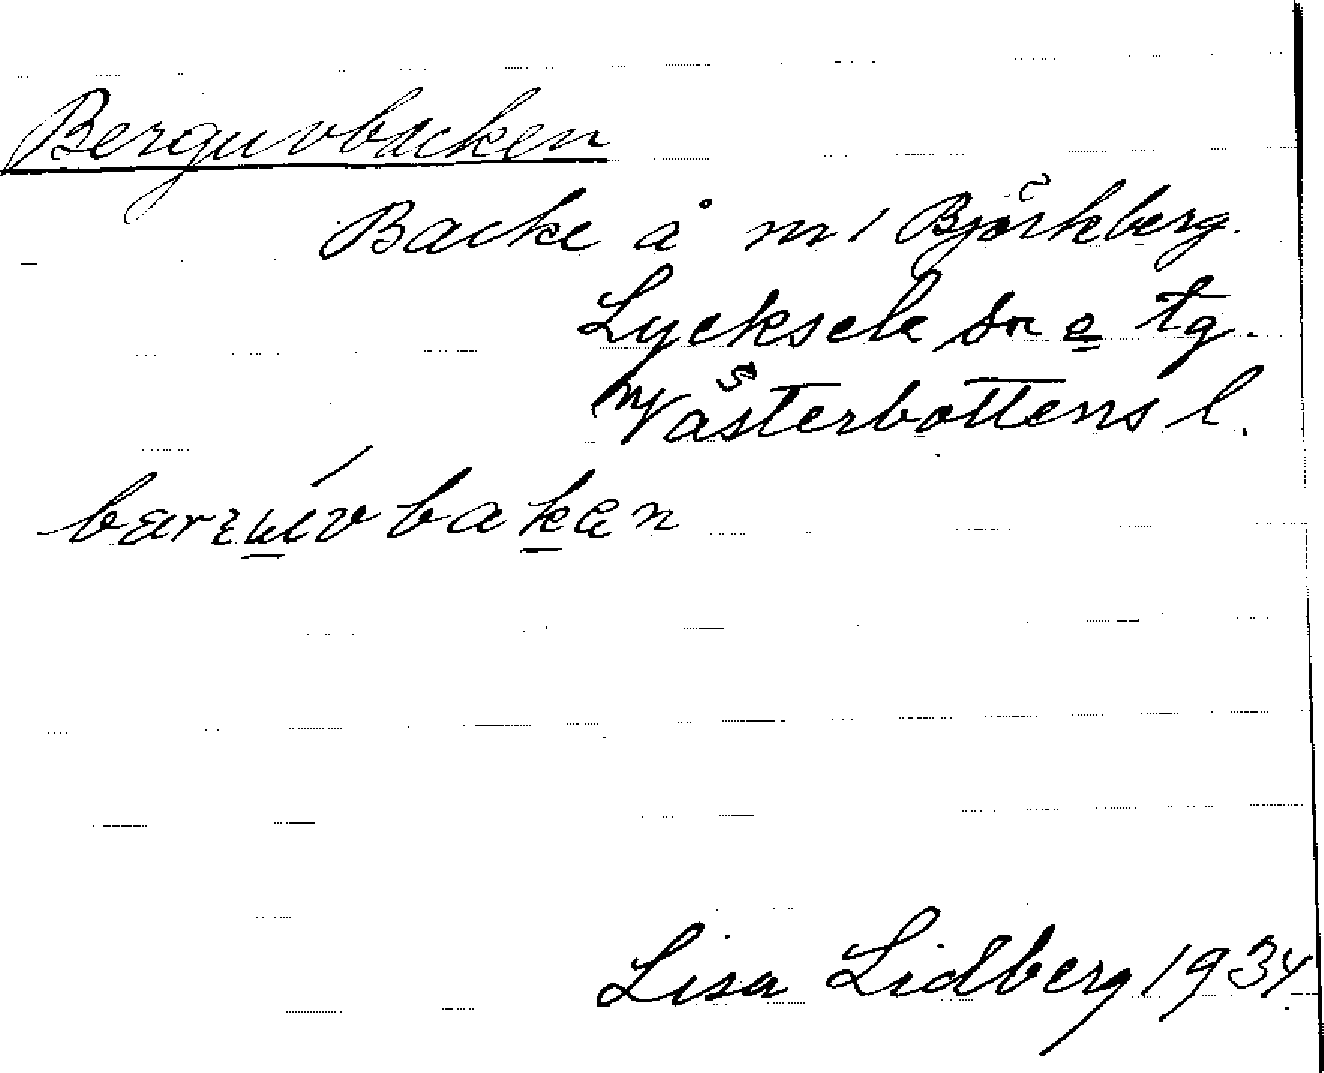 Berguvbacken
Backe å m / Björkberg.
Lycksele sn o tg.
Västerbottens l.
Lisa Lidberg 1934